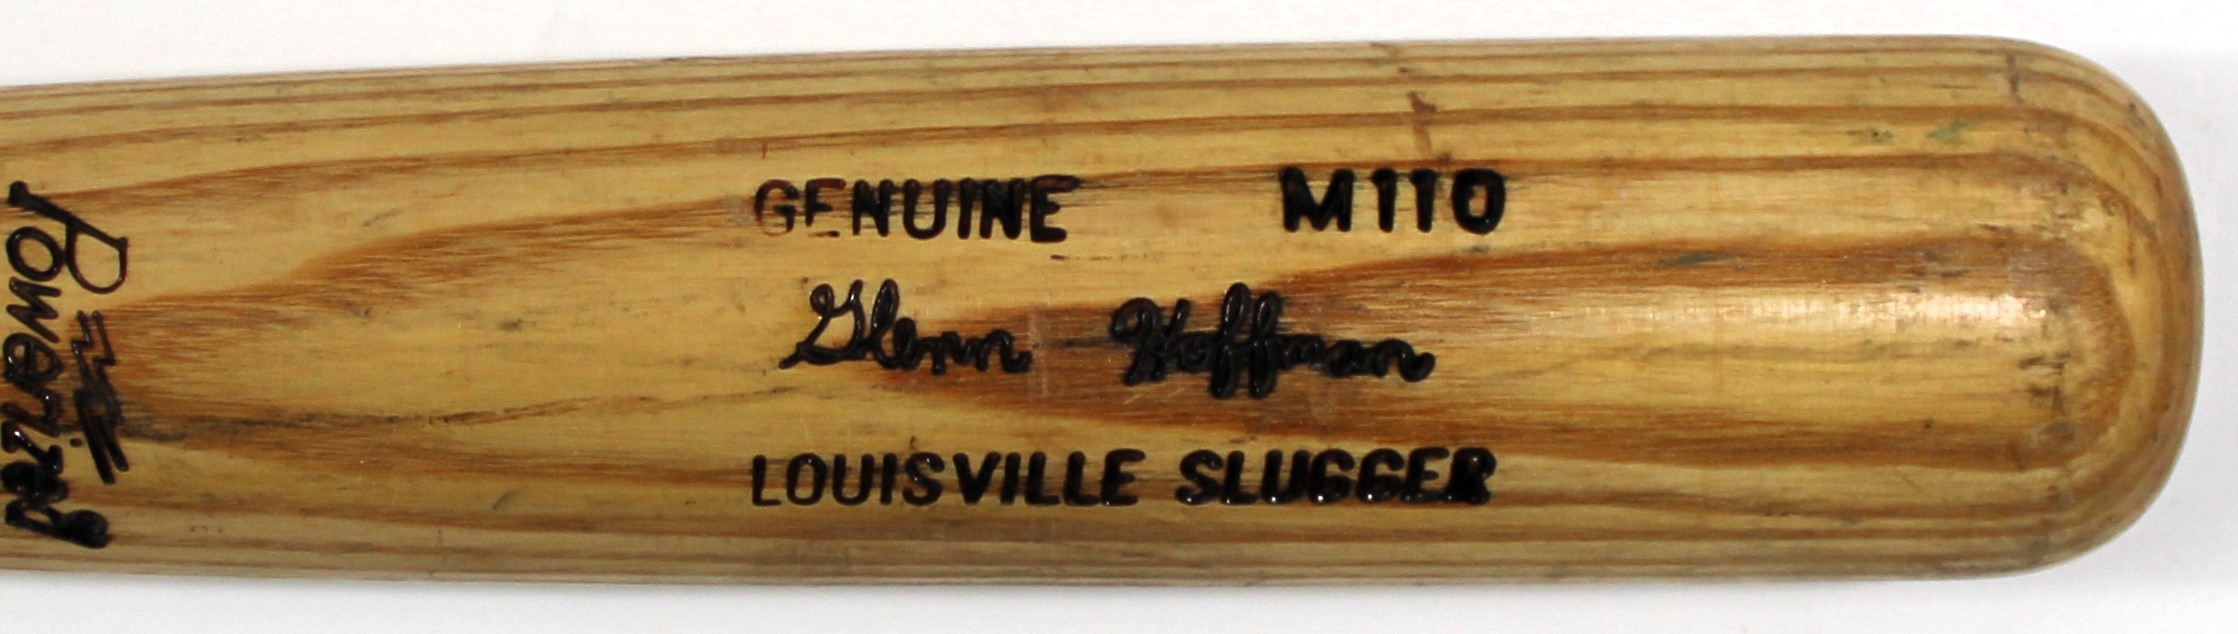 Powerized
GENUINE M110
Glenn Hoffman
LOUISVILLE SLUGGER